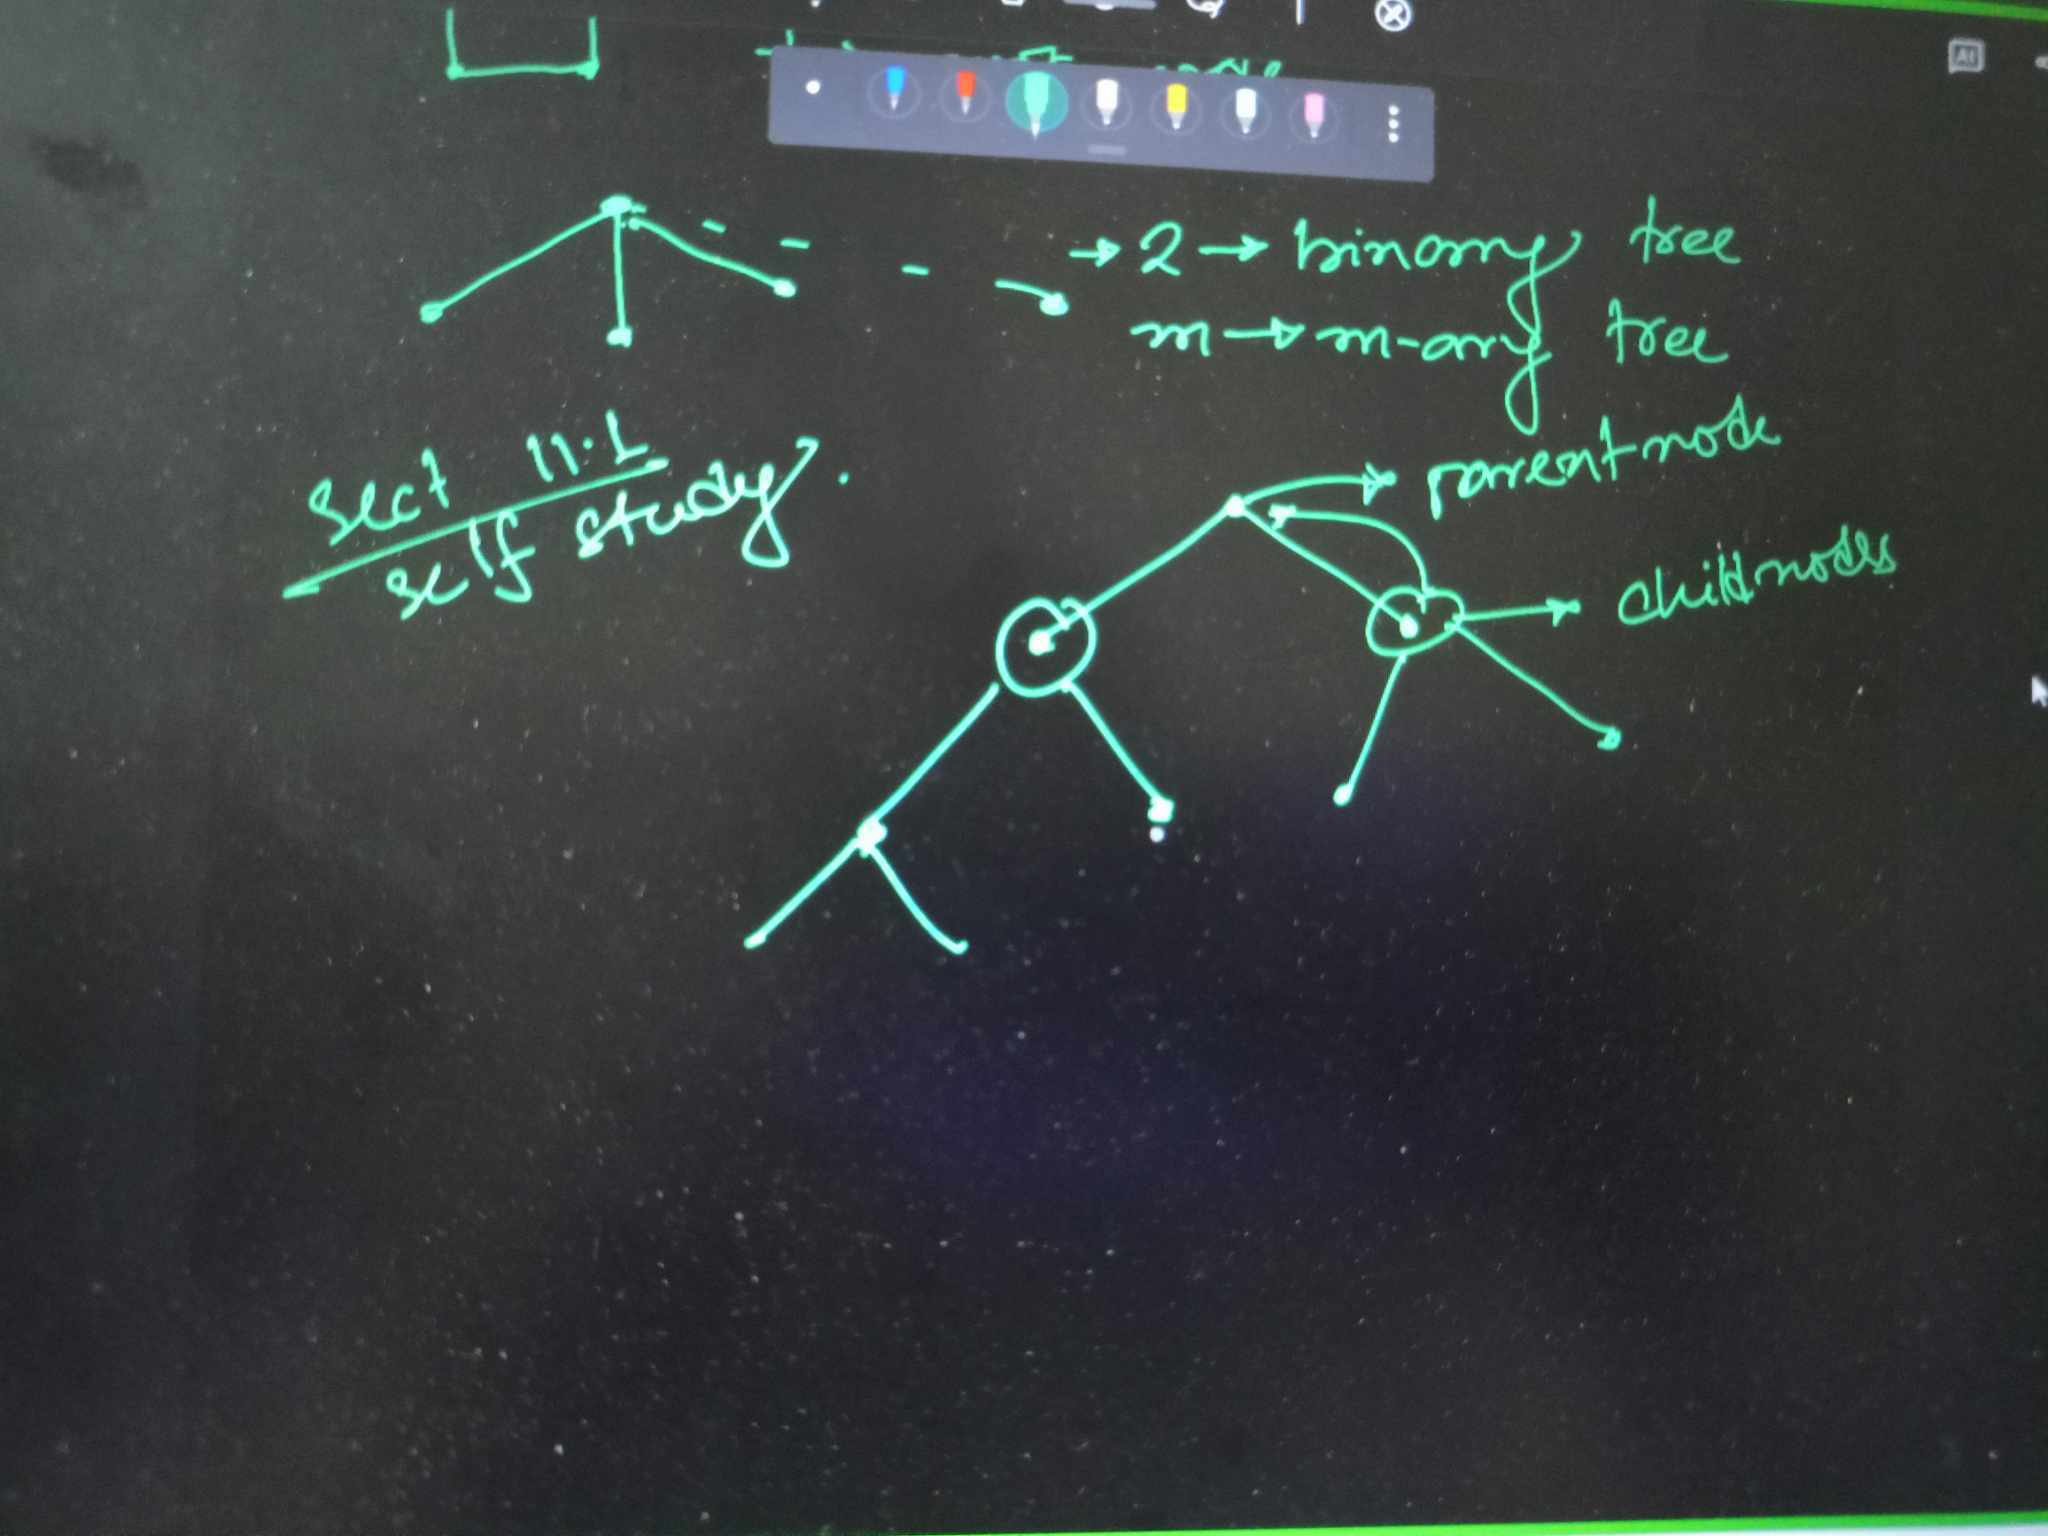 → 2 → binary tree
m → m-ary tree
sect 11.1
self study.
parent node
child nodes
AI